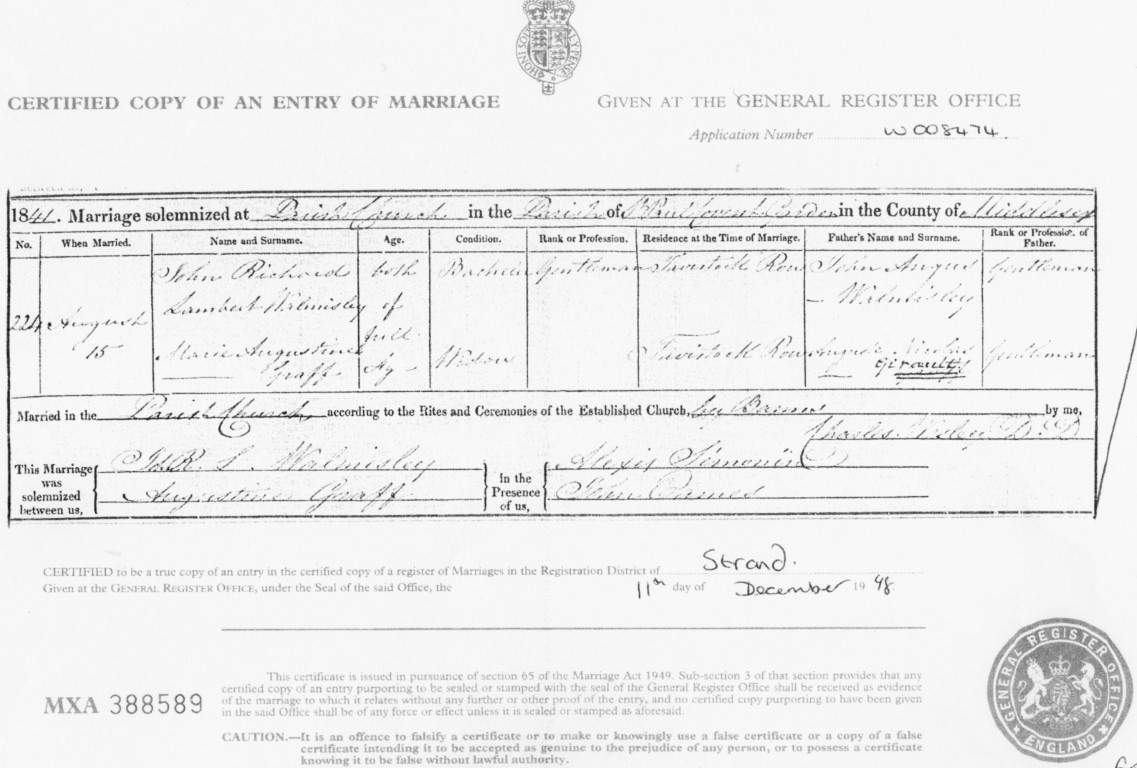 CERTIFIED COPY OF AN ENTRY OF MARRIAGE
GIVEN AT THE GENERAL REGISTER OFFICE
Application Number W008474.
1841. Marriage solemnized at Parish Church in the Parish of St Paul Covent Garden in the County of Middlesex
No. When Married. Name and Surname. Age. Condition. Rank or Profession. Residence at the Time of Marriage. Father's Name and Surname. Rank or Profession of Father.
John Richard both Bachelor Gentleman Tavistock Row John Angus Gentleman
Lambert Walmisley of — Walmisley
224 August full
15 Marie Augustine Age Widow Tavistock Row Auguste Nicolas Gentleman
Graff Girault
Married in the Parish Church according to the Rites and Ceremonies of the Established Church, by Banns by me,
Charles Wesley D.D
This Marriage was solemnized between us,
J. R. L. Walmisley
Augustine Graff
In the Presence of us,
Alexis Simonin
John Eames
CERTIFIED to be a true copy of an entry in the certified copy of a register of Marriages in the Registration District of Strand.
Given at the GENERAL REGISTER OFFICE, under the Seal of the said Office, the 11th day of December 1998.
This certificate is issued in pursuance of section 65 of the Marriage Act 1949. Sub-section 3 of that section provides that any
certified copy of an entry purporting to be sealed or stamped with the seal of the General Register Office shall be received as evidence
of the marriage to which it relates without any further or other proof of the entry, and no certified copy purporting to have been given
in the said Office shall be of any force or effect unless it is sealed or stamped as aforesaid.
MXA 388589
CAUTION.—It is an offence to falsify a certificate or to make or knowingly use a false certificate or a copy of a false
certificate intending it to be accepted as genuine to the prejudice of any person, or to possess a certificate
knowing it to be false without lawful authority.
GENERAL REGISTER OFFICE
ENGLAND